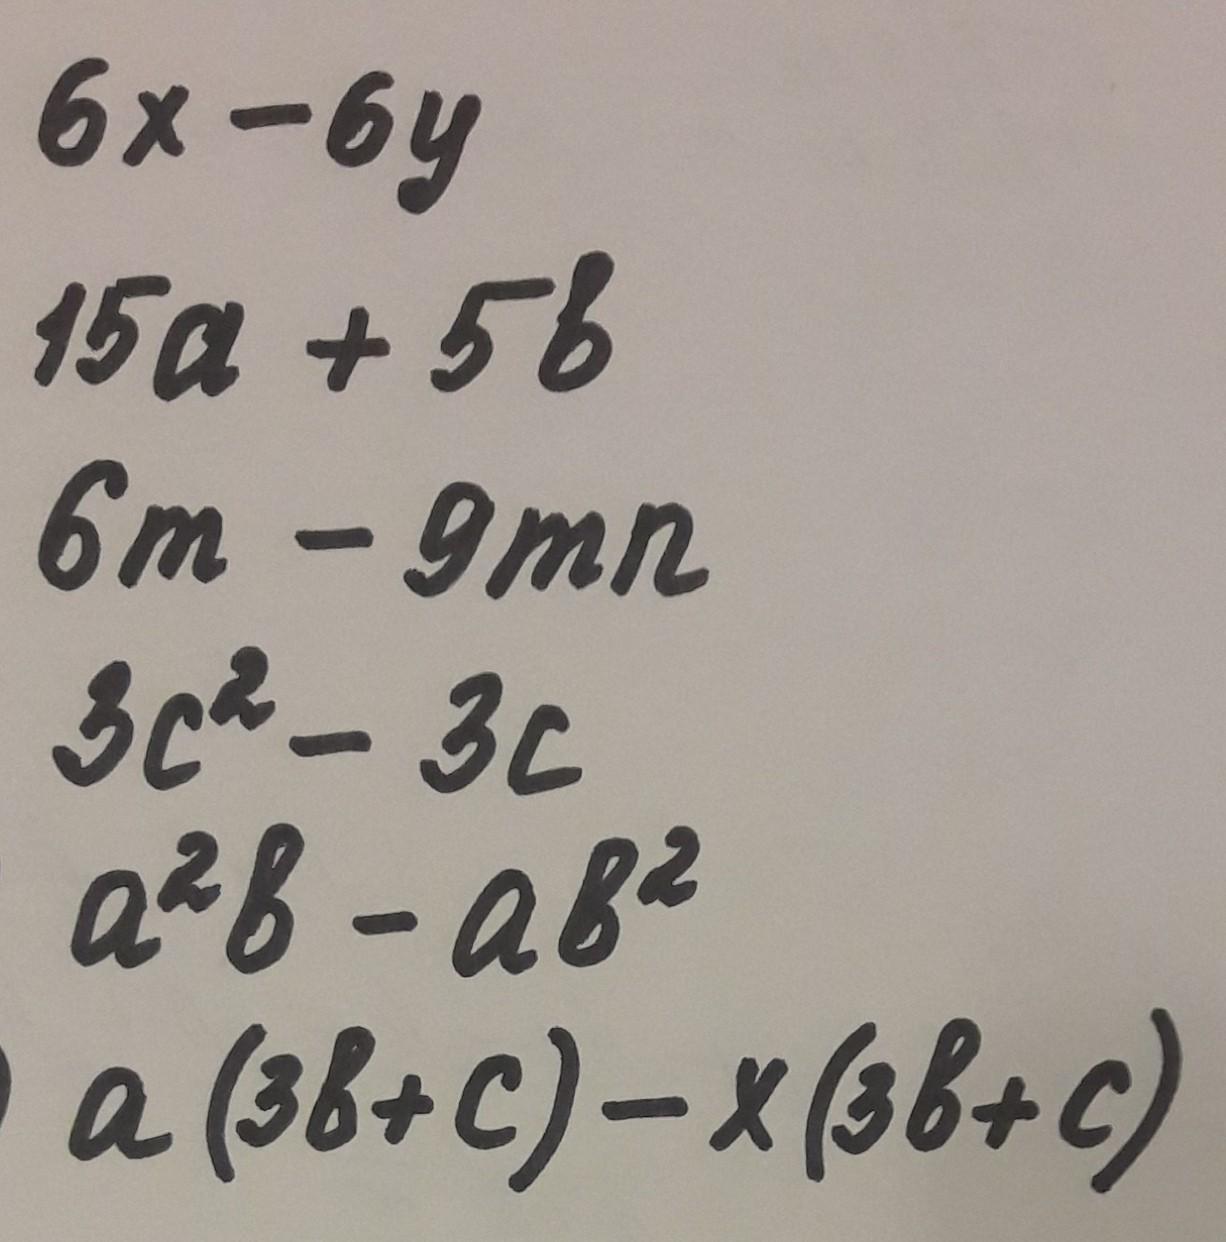 6x - 6y
15a + 5b
6m - 9mn
3c² - 3c
a²b - ab²
) a (3b+c) - x (3b+c)